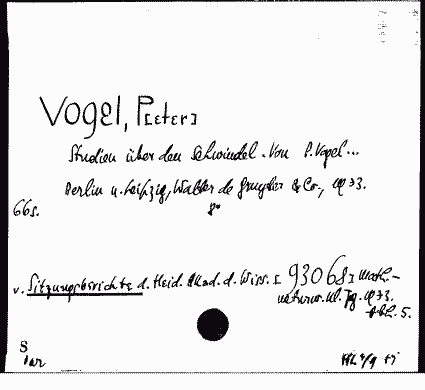 Vogel, P[eter]
Studien über den Schwindel. Von P. Vogel...
Berlin u. Leipzig, Walter de Gruyter & Co., 1933.
66 S. 8°
v. Sitzungsberichte d. Heid. Akad. d. Wiss. [93068] Math.-
naturw. Kl. Jg. 1933.
Abh. 5.
S